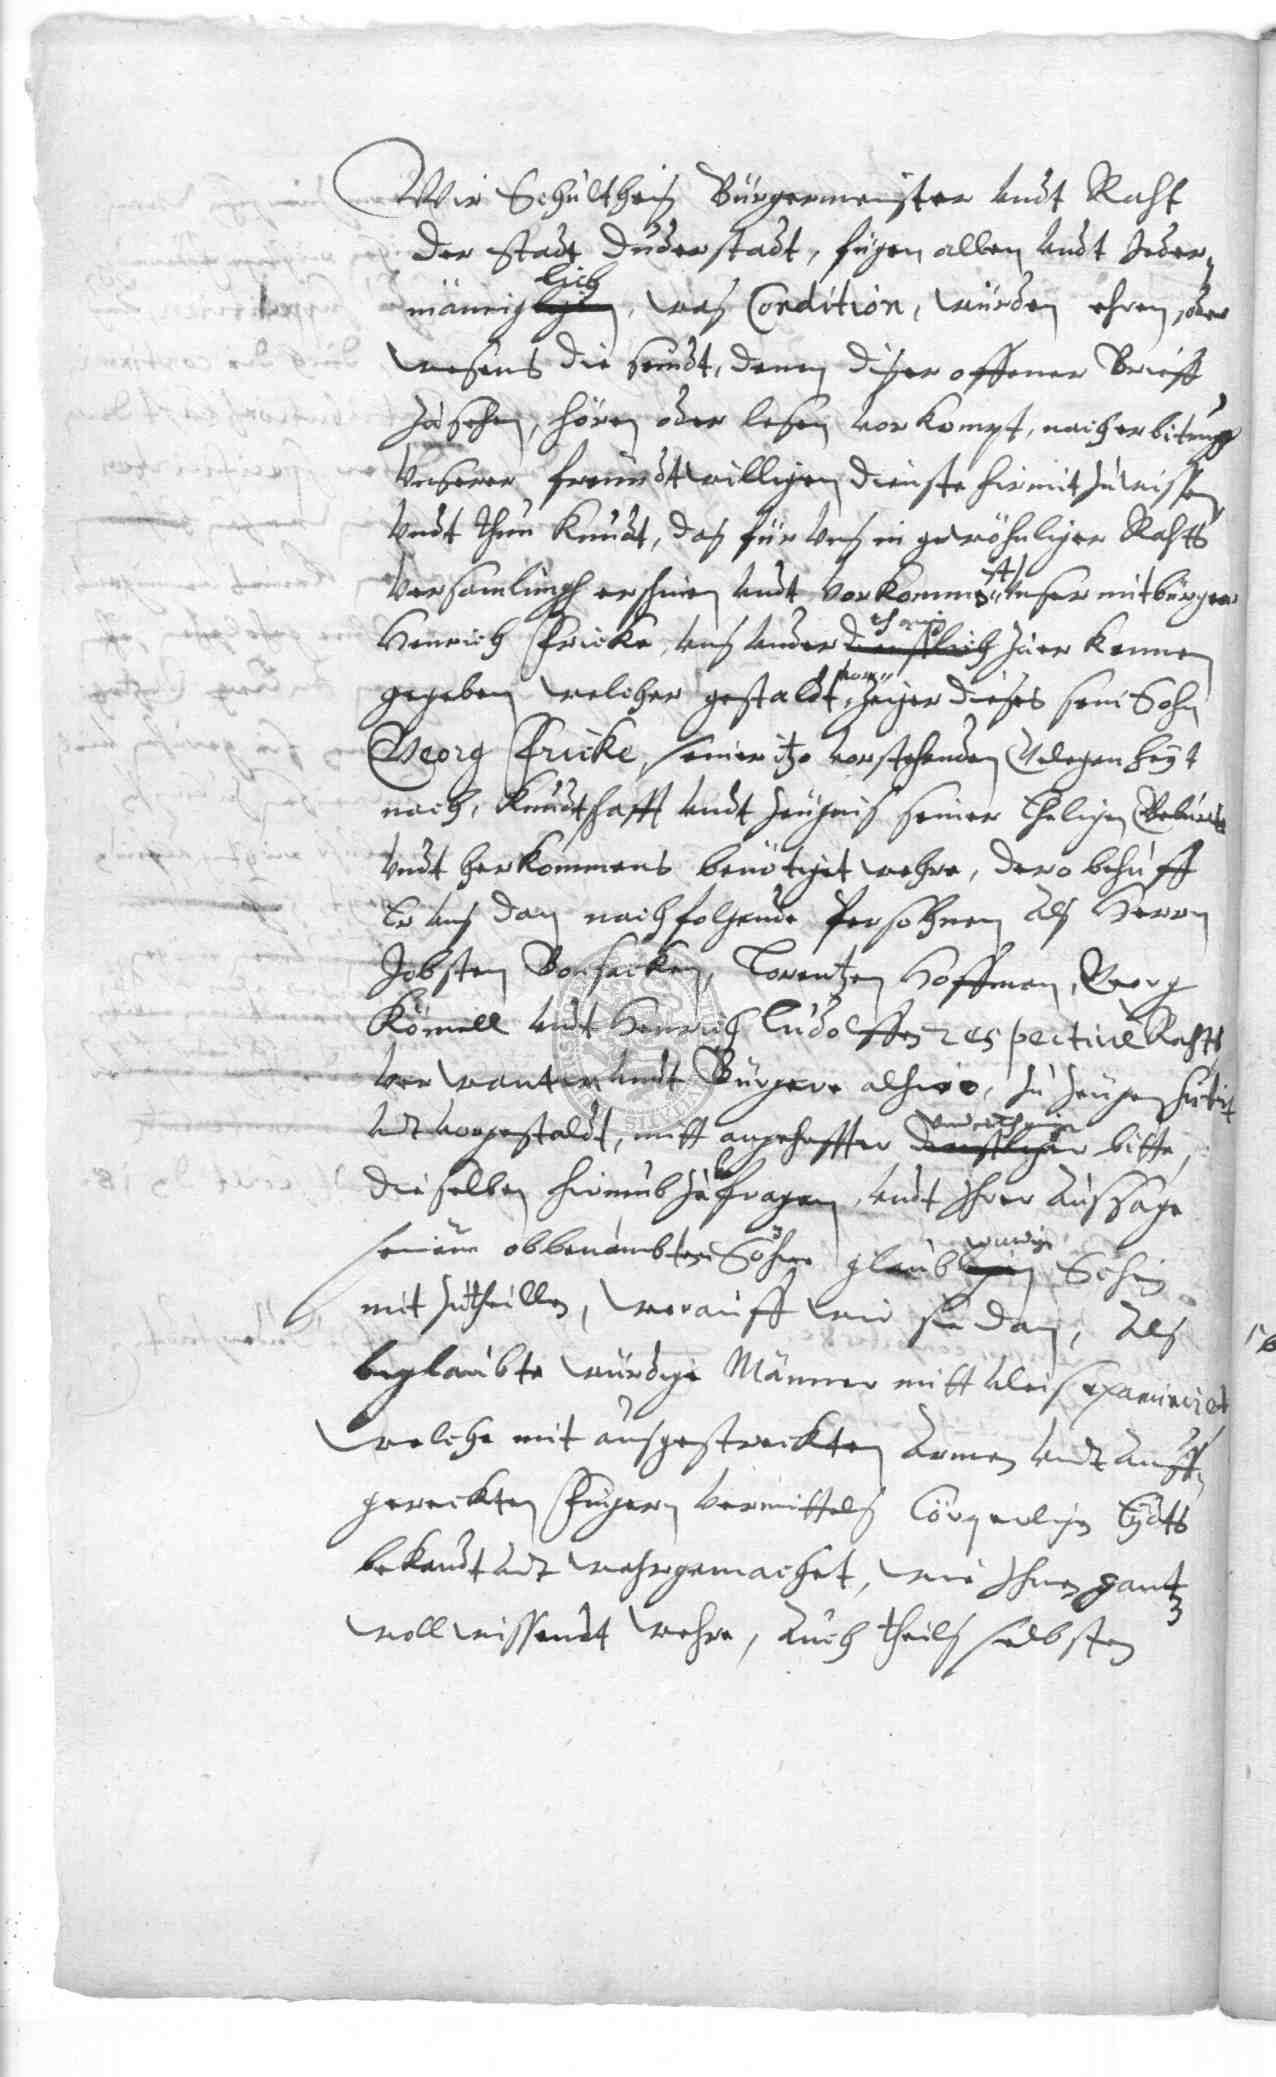 Wir Schultheis Bürgermeister undt Raht
der Stadt Duderstadt, fügen allen undt Jeder„
männiglich, was Condition, würden ehren, oder
wesens die seindt, denen dißer offener Brieff
zu sehen, hören oder lesen vorkompt, nach erbitung
Unserer freundtwilligen Dienste hirmit zu wissen
Undt thun kundt, das für Uns in gewöhnliger Rahts
Versamlungh erschinen undt vorkommen Unser mitbürger
Henrich Fricke, uns underthenig zu erkennen
gegeben welicher gestaldt, Zeiger dieses sein Sohn
Georg Fricke, seiner itzo vorstehenden Gelegenheyt
nach, kundtschafft undt Zeugnis seiner Eheligen Geburts
Undt herkommens benötiget wehre, dero behuff
Er uns dan nachfolgende Persohnen als Herrn
Jobsten, Lorentzen Hoffman, Georg
undt Henrich Ludolffen respective Rahts
verwanten undt Bürgere alhiro, zu Zeugen
undt vorgestaldt, mitt angehaffter Underthenige bitte,
dieselben hirumb zu befragen, undt Ihrer Aussage
seinem obbenambten Sohne glaubwürdigen Schein
mit zutheillen, worauff wir sie dan, als
beglaubte würdige Männer mitt vleis examiniret
welche mit ausgestreckten Armen undt auff„
gereckten Fingern vermittels Cörperligen Eydts
bekandt undt wahrgemachet, wie Ihnen gantz
woll wissendt wehre, Auch theils selbsten